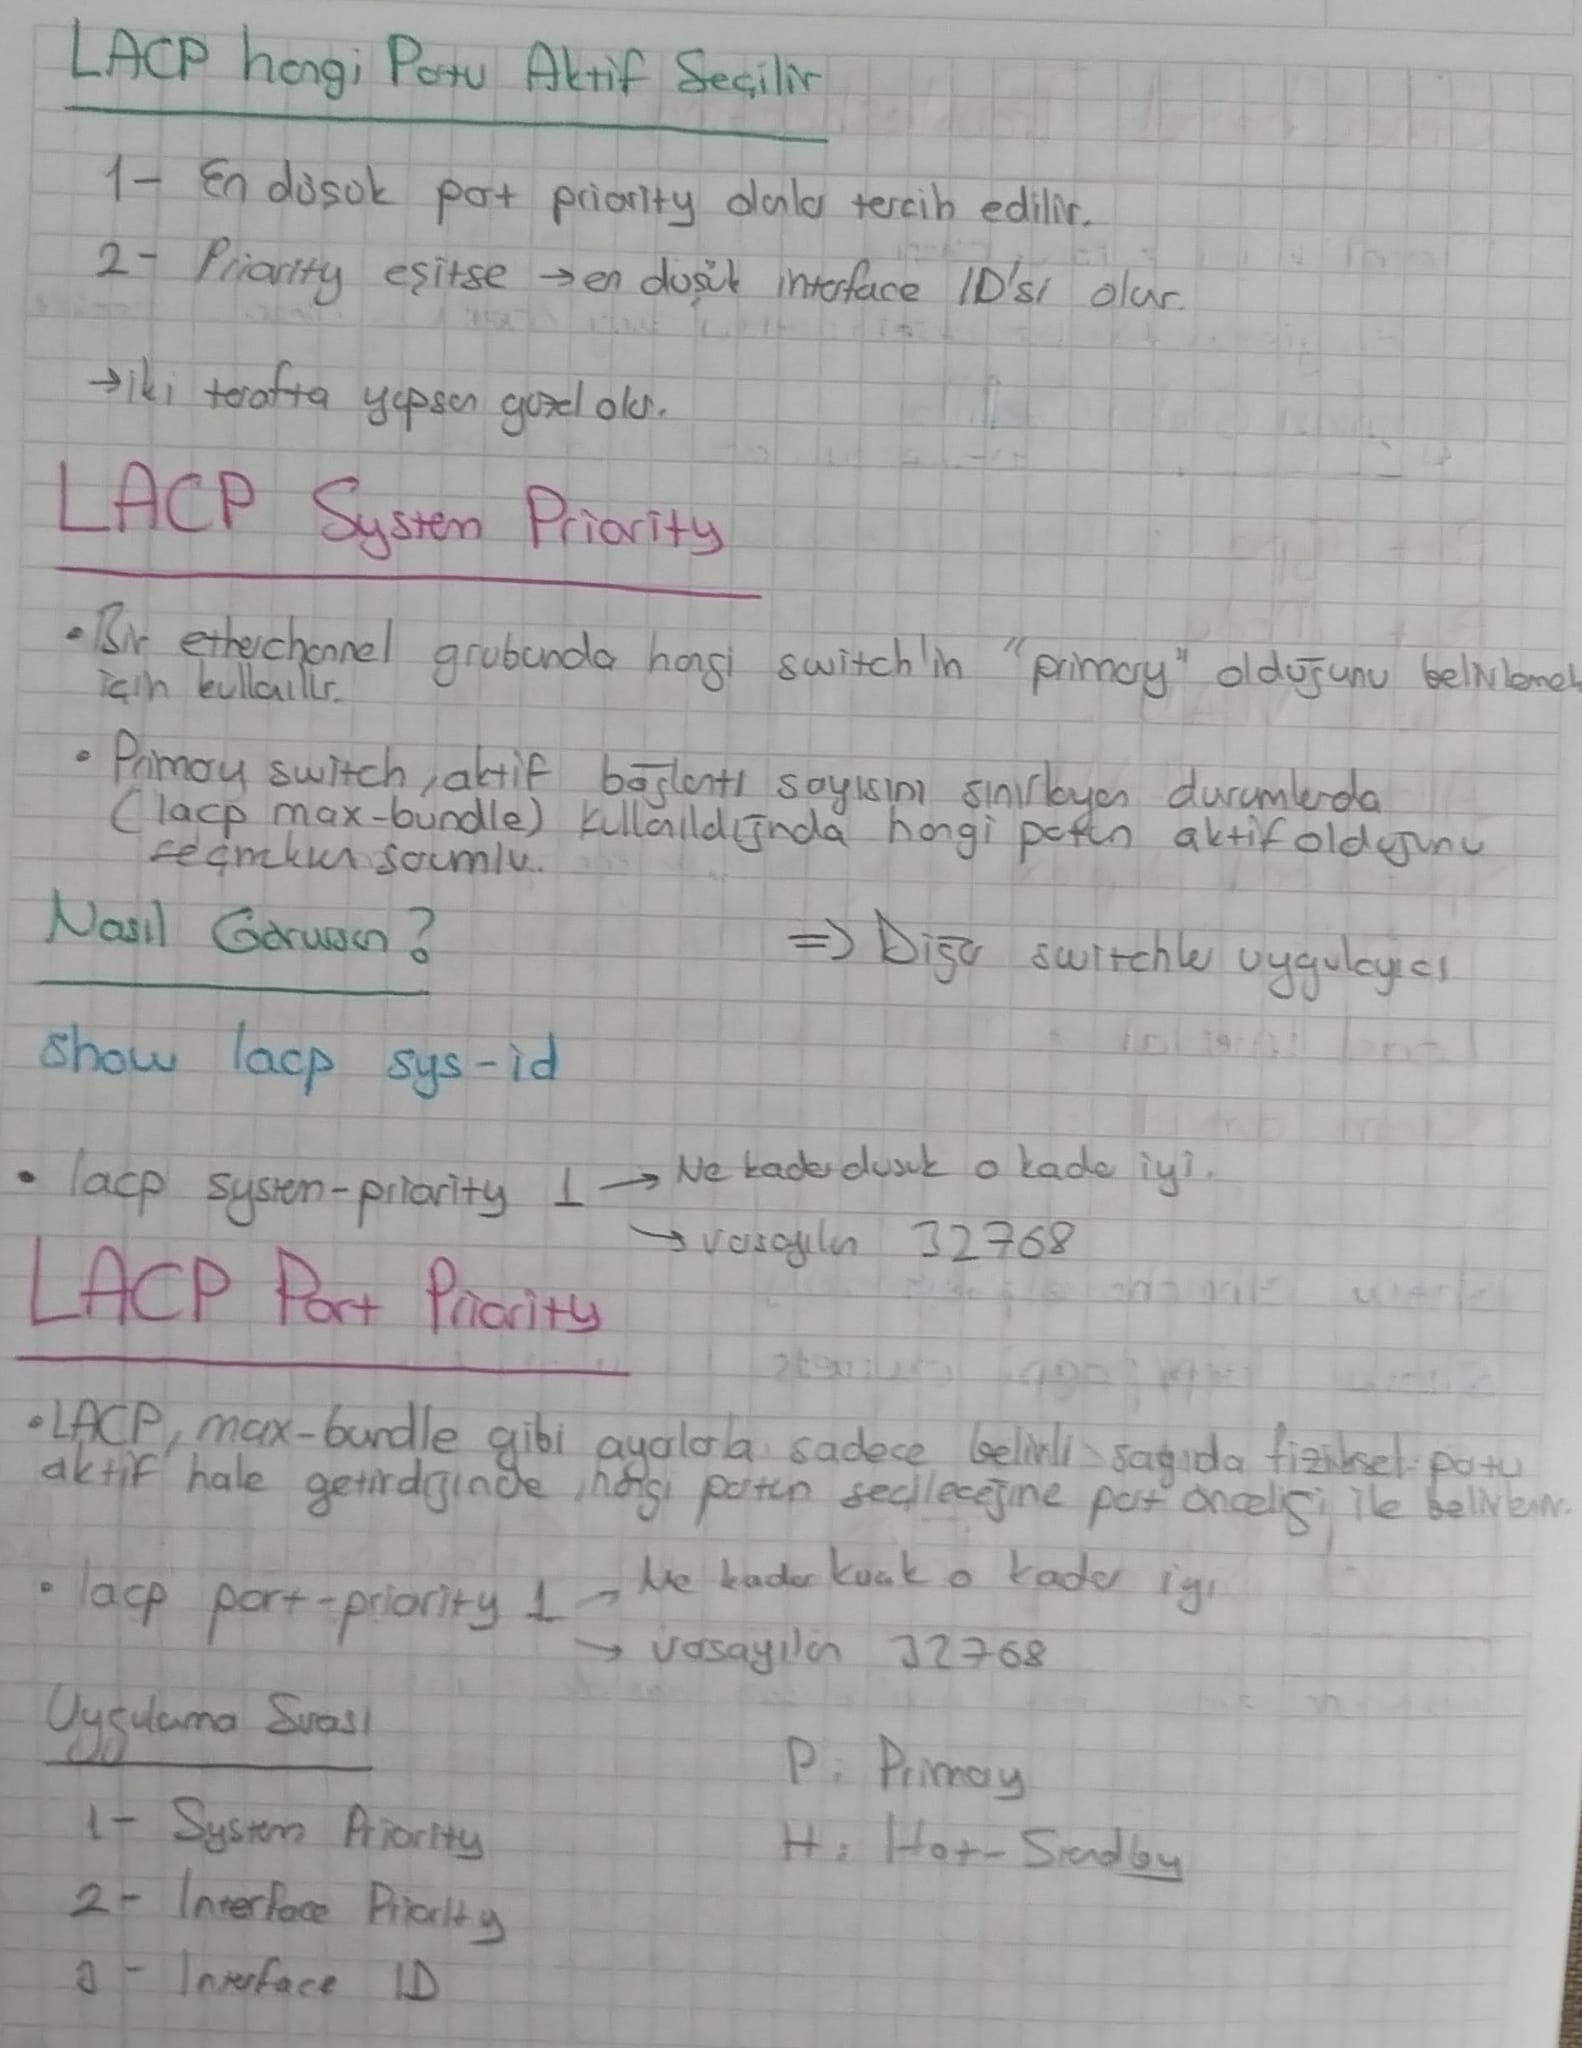 LACP hangi Portu Aktif Seçilir
1- En düşük port priority olanlar tercih edilir.
2- Priority eşitse → en düşük interface ID'si olur.
→ iki tarafta yapsan güzel olur.
LACP System Priority
• Bir etherchannel grubunda hangi switch'in "primary" olduğunu belirlemek
için kullanılır.
• Primary switch, aktif bağlantı sayısını sınırlayan durumlarda
(lacp max-bundle) kullanıldığında hangi portun aktif olduğunu
seçmekten sorumlu.
Nasıl Görürsün?
=> Diğer switchler uygulayıcı
show lacp sys-id
• lacp system-priority 1 → Ne kadar düşük o kadar iyi.
→ varsayılan 32768
LACP Port Priority
• LACP, max-bundle gibi ayarlarla sadece belirli sayıda fiziksel portu
aktif hale getirdiğinde, hangi portun seçileceğine port önceliği ile belirlenir.
• lacp port-priority 1 → Ne kadar küçük o kadar iyi
→ varsayılan 32768
Uygulama Sırası
1- System Priority
2- Interface Priority
3- Interface ID
P: Primary
H: Hot-Standby